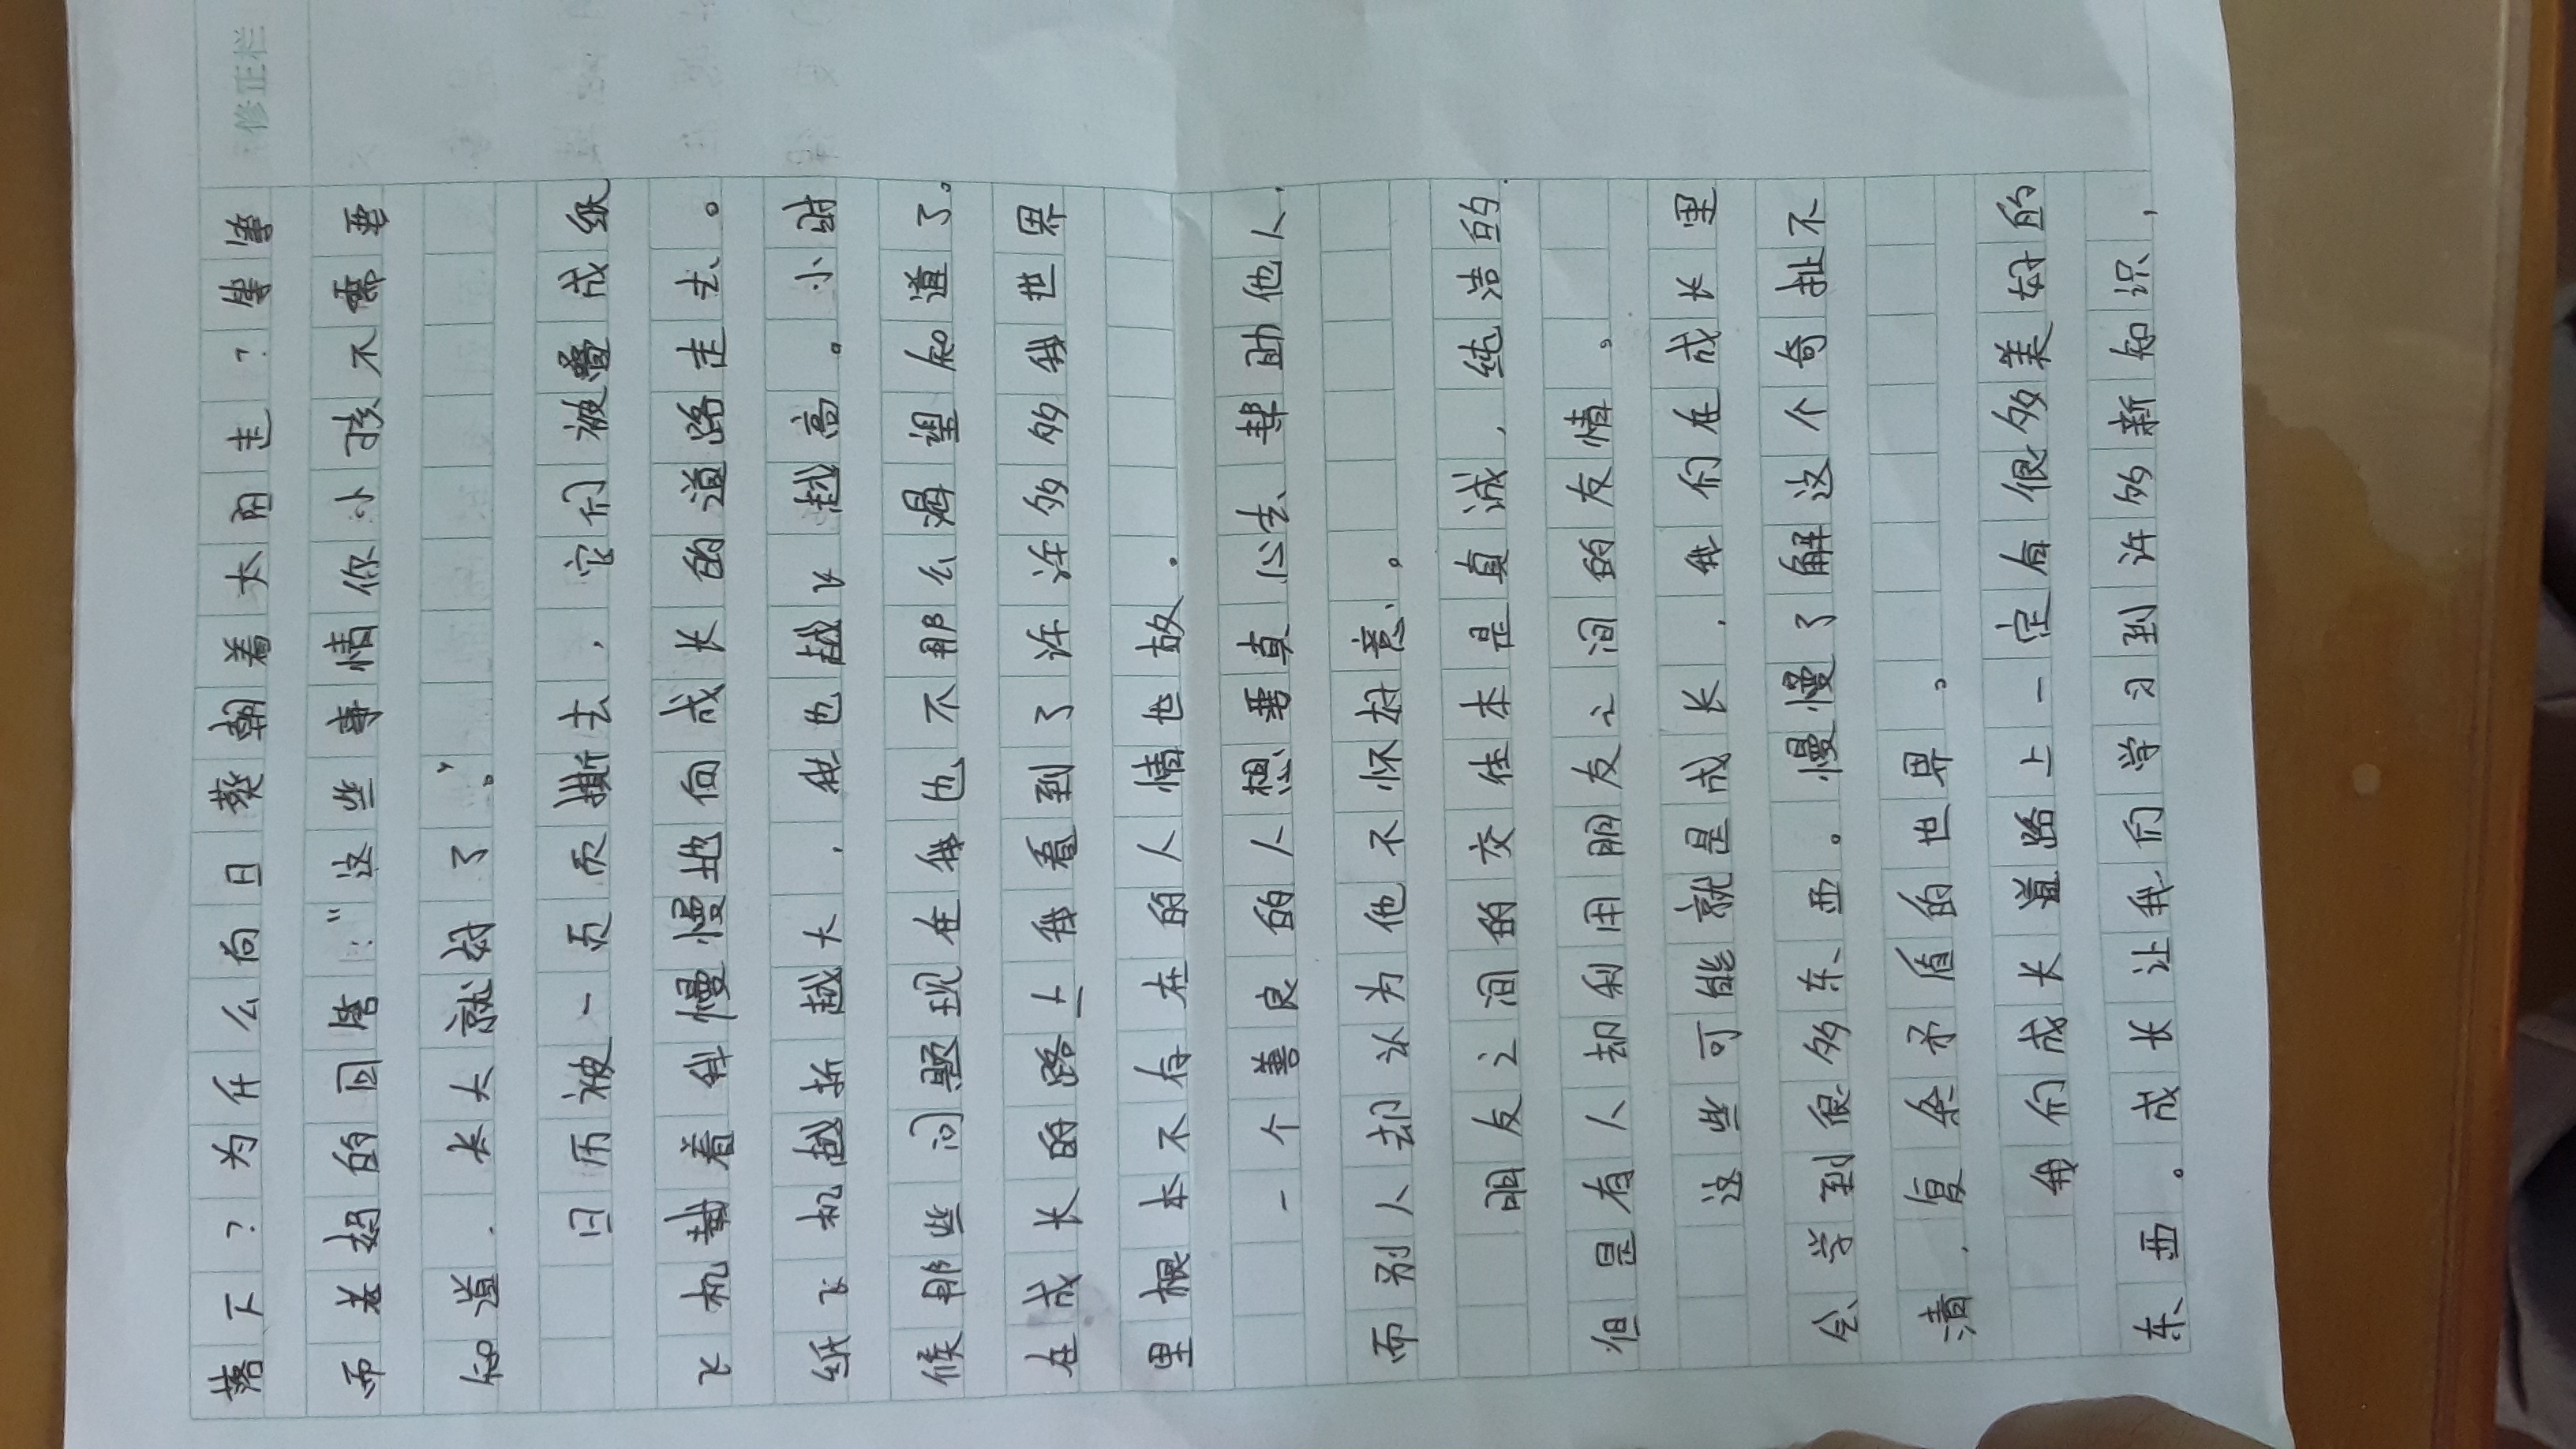 修正栏
落下?为什么向日葵朝着太阳走?等等
而老妈的回答:“这些事情你小孩不需要
知道,长大就好了。”
日历被一页一页撕去,它们被叠成纸
飞机载着我慢慢地向成长的道路走去。
纸飞机越折越大,我也越飞越高。小时
候那些问题现在我也不那么渴望知道了。
在成长的路上我看到了许许多多我世界
里根本不存在的人情世故。
一个善良的人想要真心去帮助他人,
而别人却认为他不怀好意。
朋友之间的交往本是真诚,纯洁的,
但是有人却利用朋友之间的友情。
这些可能就是成长,我们在成长里
会学到很多东西。慢慢了解这个奇扯不
清,复杂矛盾的世界。
我们成长道路上一定有很多美好的
东西。成长让我们学习到许多新知识,